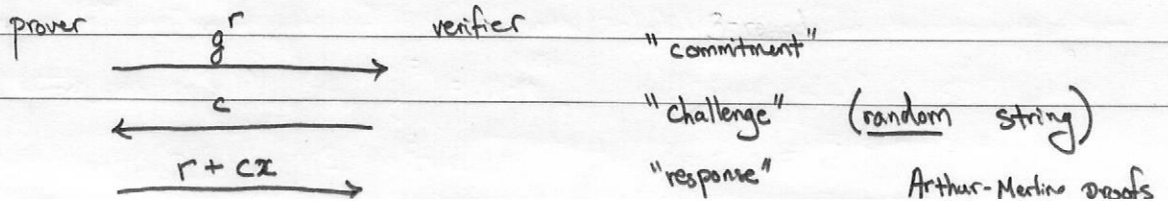 prover g^r verifier "commitment"
c "challenge" (random string)
r + cx "response" Arthur-Merlin proofs